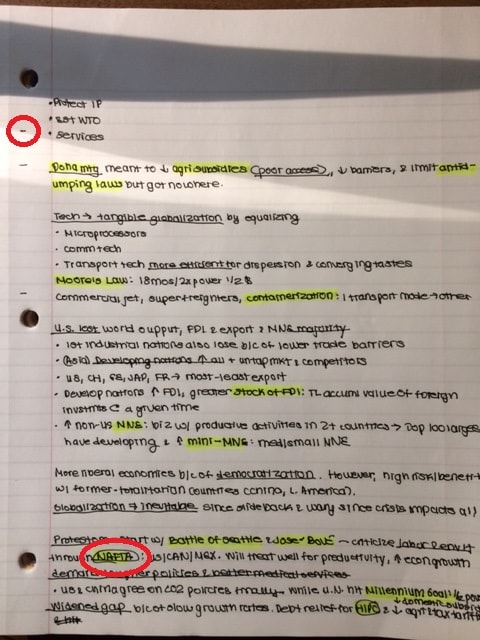 • Protect IP
• est WTO
- • services
- Doha mtg meant to ↓ agri subsidies (poor access), ↓ barriers, & limit antid-
umping laws but got nowhere.
Tech → tangible globalization by equalizing
• Microprocessors
• comm tech
• Transport tech more efficient for dispersion & converging tastes
Moore's Law: 18mos/2x power 1/2 $
- Commercial jet, superfreighters, containerization: 1 transport mode → other
U.S. lost world output, FDI & export & MNE majority
• lot industrial nations also lose b/c of lower trade barriers
• (Asia) Developing nations ↑ all + untap mkt & competitors
• US, CH, GE, JAP, FR → most-least export
• Develop nations ↑ FDI, greater stock of FDI: TL accum value of foreign
invstmts @ a given time
• ↑ non-US MNE: biz w/ productive activities in 2+ countries → Top 100 largest
have developing & ↑ mini-MNE: med/small MNE
More liberal economies b/c of democratization. However, high risk/benefit
w/ former-totalitarian countries (China, L. America).
Globalization ≠ inevitable since slide back & wary since crisis impacts all
Protestors start w/ Battle of Seattle & Jose-Bové — criticize labor & envit
through NAFTA: US/CAN/MEX. Will treat well for productivity, ↑ econ growth
demand higher policies & better medical services
• US & China agree on CO2 policies finally. While U.N. hit Millennium Goal: 1/2 pov
Widened gap b/c of slow growth rates. Debt relief for HIPC & ↓ agri tax tariffs
↓ domestic subsid